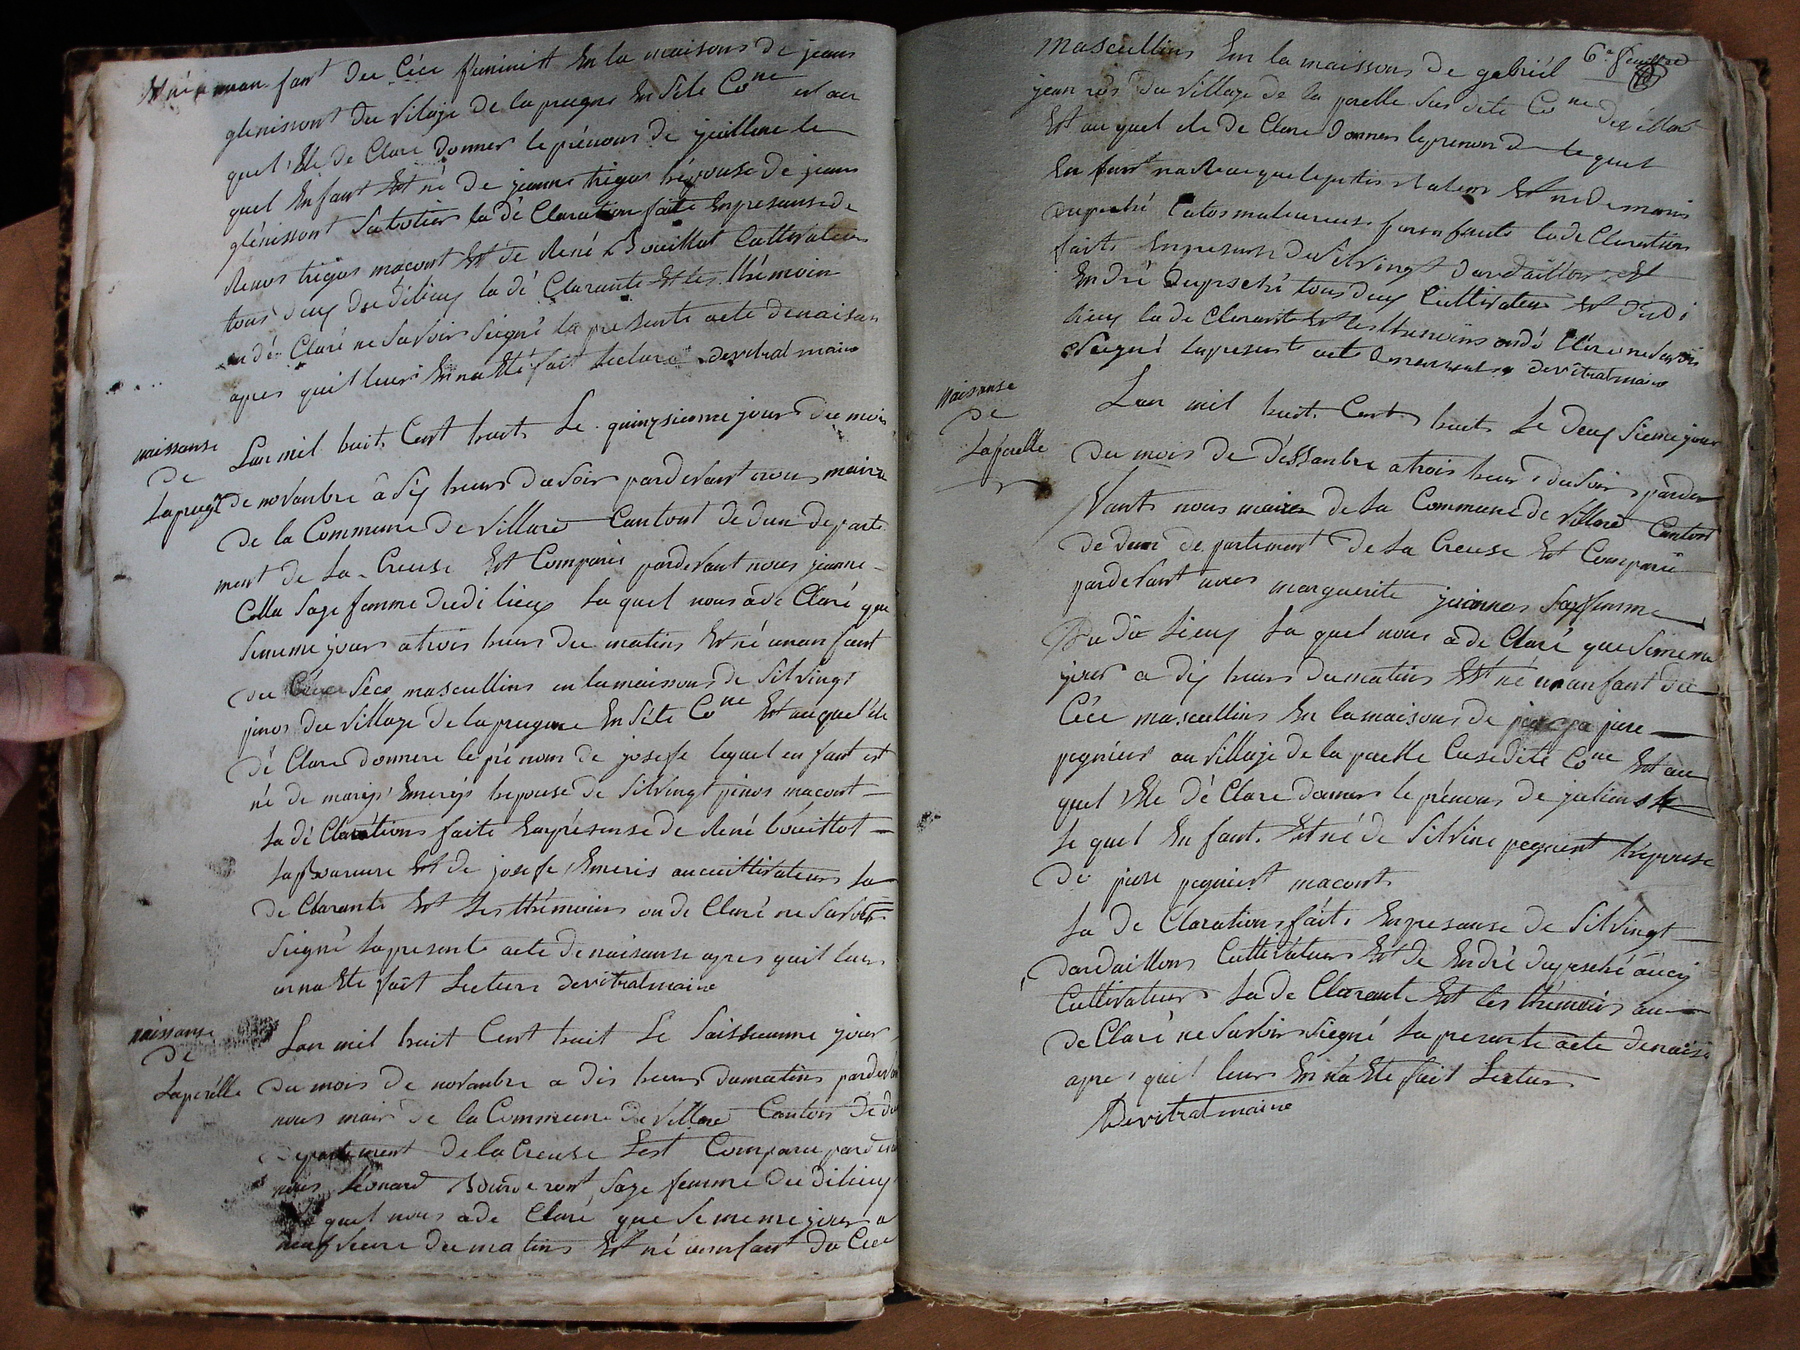 Est né un anfant du Céce feminitt En la maisons de jeans
glenissont du vilaje de la preugne En site Cone est au
quel Elle de Claré donner le prénons de juillene le
quel Enfant Est né de jeanne trigos hépouse de jean
glénissont Sabotier la dé Claration faite Enpresanse de
trigos macont Est de René Bouillot Cultivateur
tous deux du dilieuy la dé Clarante Est les thémoin
on dé Claré ne Savoir Siegné la presente acte denaisan
apres quil leurs En na Eté fait lecture devitrat maire
naissanse
de
Lapreugne
Lan mil huit Cent huit Le quinzsieme jours du mois
de novanbre à Siy heurs dusoir pardevant nous maire
de la Commune de villard Cantont de dun departe
ment de La Creuse Est Comparue pardevant nous jeanne
Colla Sage famme dudi lieuy La quel nous à de Claré que
Sememe jours a trois heurs du matins Est né un anfant
du Sece mascullins en lamaisons de Silvingt
pinos du village de la preugne En Site Cone Est au quel éle
dé Clare donnere le pré nons de josefe lequel en fant est
né de marys Emerys hepouse de Silvingt pinos macont
La dé Clarations faite Enprésense de René bouillot
Est de josefe Emeris cultivateurs La
de Clarante Est Les thémoins on de Claré ne Savoir
Siegné La presente acte denaisanse apres quil leurs
an na Eté fait Lecture devitrat maire
naissanse
de
Laperélle
Lan mil huit Cent huit Le Saissieume jour
du mois de novanbre a dis heurs dumatins pardevan
nous mair de la Commune de villard Canton de du
departement de la Creuse Est Comparue pardevan
nous Léonard Sage femme du dilieuy
La quel nous à de Claré que Se meme jour a
neuf heure du matins Est né un enfant du Cece
6e feuillet
mascullins En la maisons de gabriél
jean ros du village de La parelle Sus dite Cone de villard
Est au quel éle de Claré donner le prenon de le quel
En fant Est né de marie
duprché
faite Enpresense de Silvingt dardaillons Est
Endré duprché tous deuy Cultivateur Est du di
lieuy la de Clarante Est les themoins on dé Clére ne Savoir
Siegné la presente acte devitrat maire
Naissanse
de
Laparelle
Lan mil huit Cent huit Le deuy Sieme jour
du mois de déssanbre a trois heurs du Soir parde
vant nous maire de La Commune de villard Canton
de dun de partement de La Creuse Est Comparue
pardevant nous marguerite Sagefemme
Du di Lieuy La quel nous à de Claré que Sememe
jour a diy heurs dumatins Est né un anfant du
Céce mascullins En lamaisons de piere
pegnieur au villaje de la parelle Susedite Cone Est au
quel Elle dé Claré donner le prénons de juliens
Le quel En fant Est né de Silvine pegnient hépouse
de piere pegnient macont
La de Clarations fait Enpresanse de Silvingt
dardaillons Cultivateur Est de Endrè duprché aucy
Cultivateur La de Clarante Est les thémoins on
de Claré ne Savoir Siegné La presente acte denaisa
apres quil leurs En na Eté fait Lecture
Devitrat maire